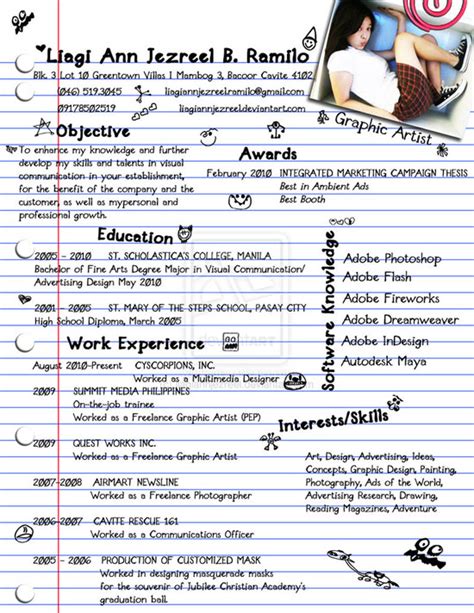 Liagi Ann Jezreel B. Ramilo
Blk. 3 Lot 10 Greentown Villas I Mambog 3, Bacoor Cavite 4102
(046) 519.3045
liagiannjezreelramilo@gmail.com
09178502519
liagiannjezreel.deviantart.com
Graphic Artist
Objective
To enhance my knowledge and further
develop my skills and talents in visual
communication in your establishment,
for the benefit of the company and the
customer, as well as mypersonal and
professional growth.
Awards
February 2010 INTEGRATED MARKETING CAMPAIGN THESIS
Best in Ambient Ads
Best Booth
Education
2005 - 2010 ST. SCHOLASTICA'S COLLEGE, MANILA
Bachelor of Fine Arts Degree Major in Visual Communication/
Advertising Design May 2010
2001 - 2005 ST. MARY OF THE STEPS SCHOOL, PASAY CITY
High School Diploma, March 2005
Software Knowledge
Adobe Photoshop
Adobe Flash
Adobe Fireworks
Adobe Dreamweaver
Adobe InDesign
Autodesk Maya
Work Experience
August 2010-Present CYSCORPIONS, INC.
Worked as a Multimedia Designer
2009 SUMMIT MEDIA PHILIPPINES
On-the-job trainee
Worked as a Freelance Graphic Artist (PEP)
2009 QUEST WORKS INC.
Worked as a Freelance Graphic Artist
2007-2008 AIRMART NEWSLINE
Worked as a Freelance Photographer
2006-2007 CAVITE RESCUE 161
Worked as a Communications Officer
2005 - 2006 PRODUCTION OF CUSTOMIZED MASK
Worked in designing masquerade masks
for the souvenir of Jubilee Christian Academy's
graduation ball.
Interests/Skills
Art, Design, Advertising, Ideas,
Concepts, Graphic Design, Painting,
Photography, Ads of the World,
Advertising Research, Drawing,
Reading Magazines, Adventure